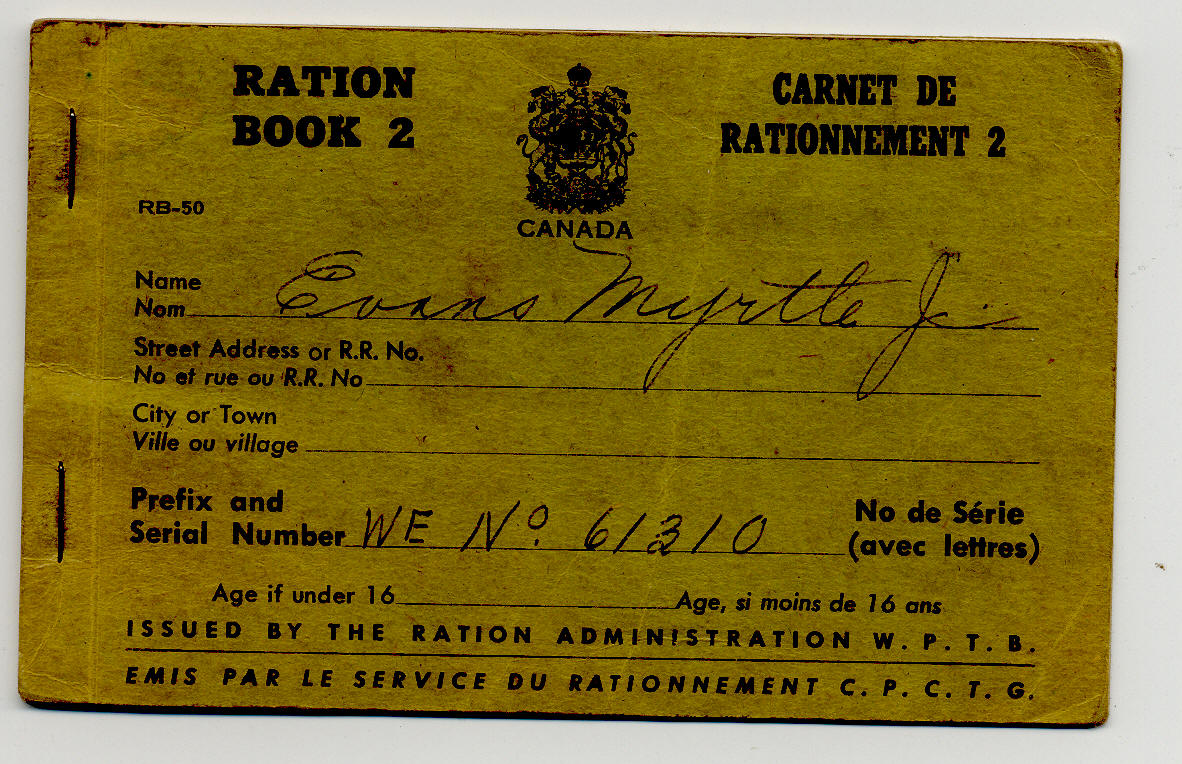 RATION
BOOK 2
CARNET DE
RATIONNEMENT 2
RB-50
CANADA
Name
Nom Evans Myrtle
Street Address or R.R. No.
No et rue ou R.R. No
City or Town
Ville ou village
Prefix and
Serial Number WE No. 61310
No de Série
(avec lettres)
Age if under 16 Age, si moins de 16 ans
ISSUED BY THE RATION ADMINISTRATION W. P. T. B.
EMIS PAR LE SERVICE DU RATIONNEMENT C. P. C. T. G.